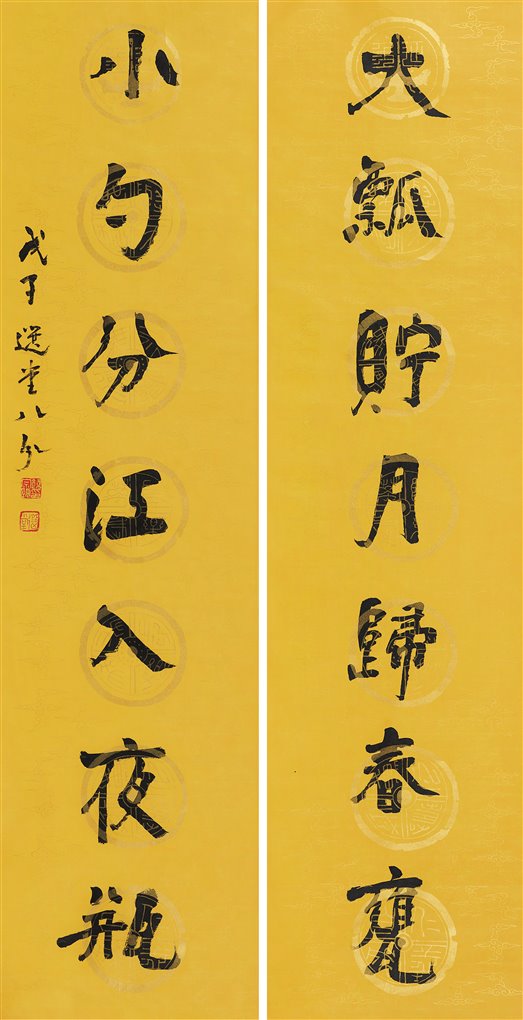 大瓢貯月歸春甕
小勺分江入夜瓶
戊子選堂八分